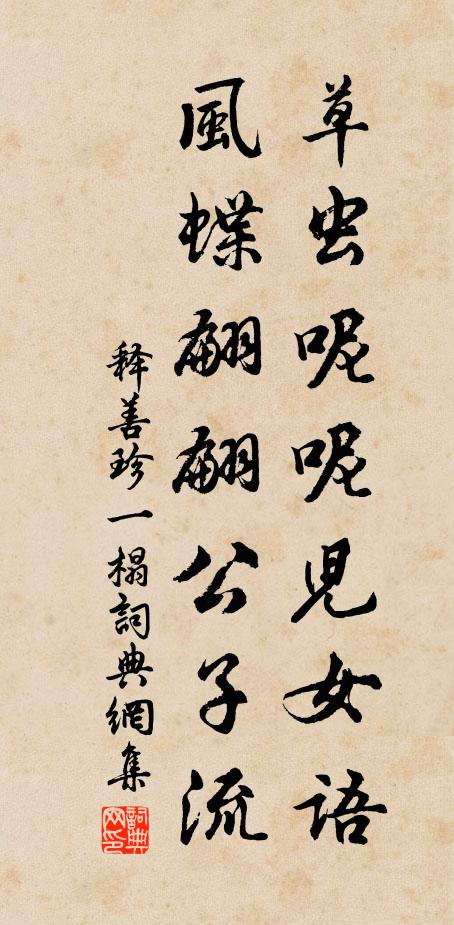 草虫呢呢兒女語
風蝶翩翩公子流
释善珍一榻詞典網集
詞典
网印